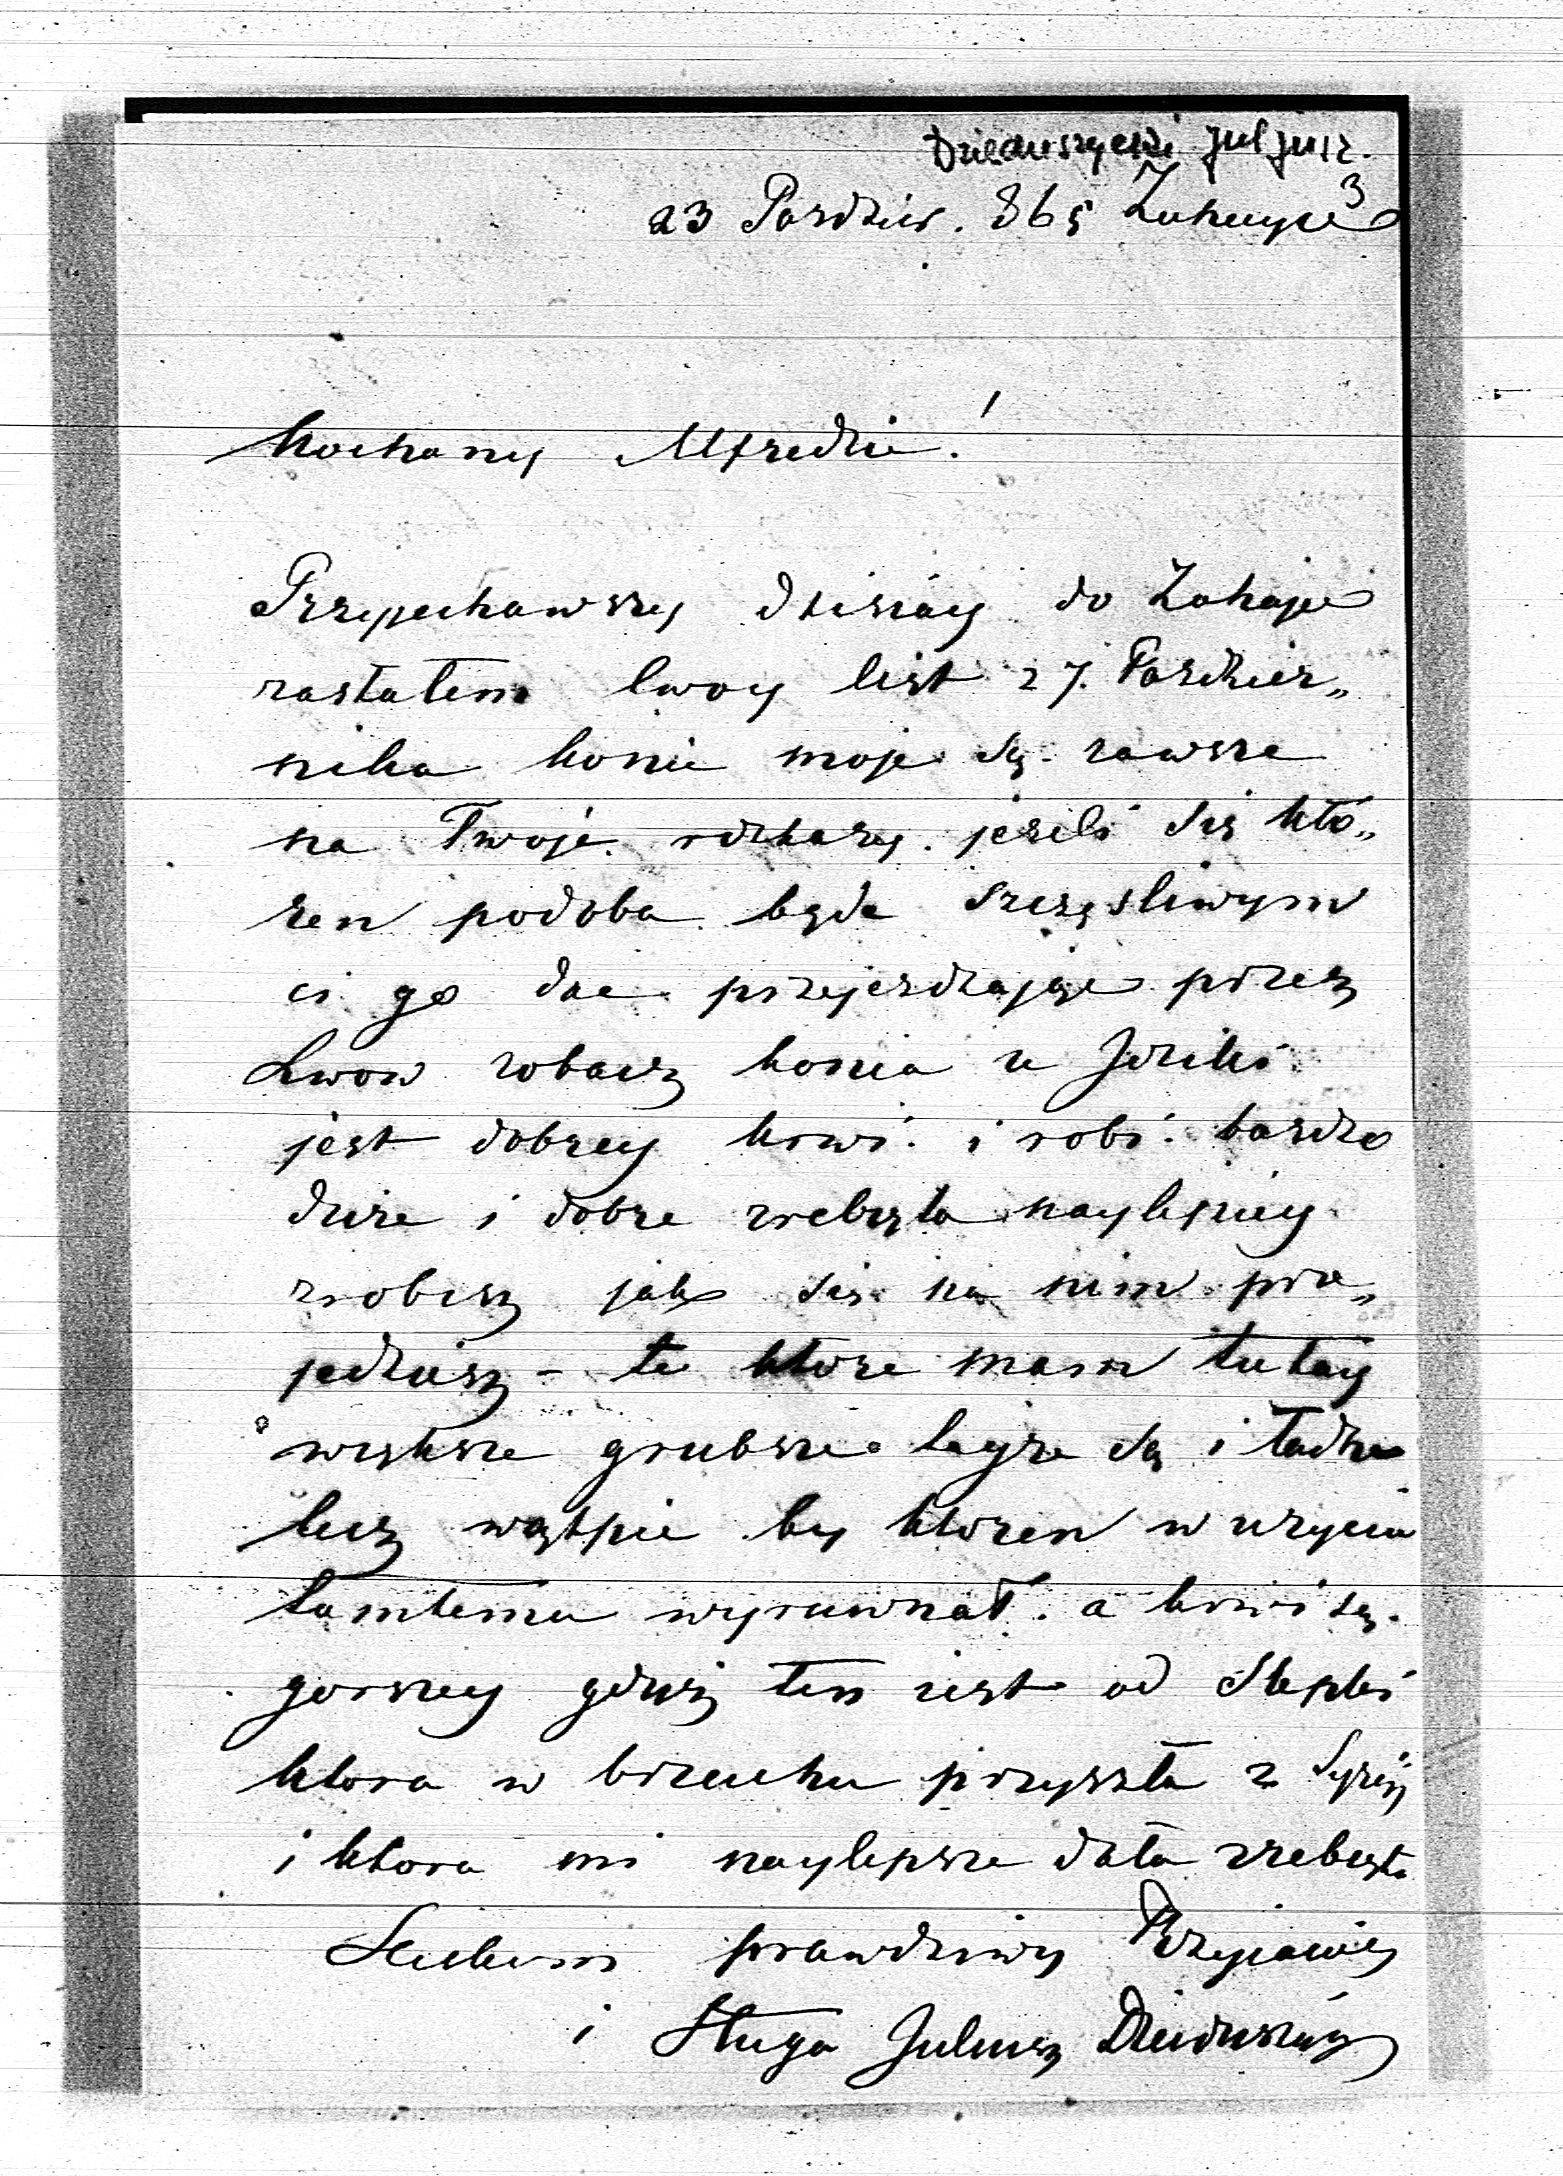 Dzieduszycki Juljusz.
3
23 Pazdzier. 865
Kochany Alfredzie!
Przyjechawszy dzisiay do
zastałem twoy list 27. Pazdzier„
nika konie moje są zawsze
na Twoje rozkazy. jezeli się któ„
ren podoba będe szczęsliwym
ci go dac przejezdzając przez
Lwow zobacz konia u
jest dobrey krwi i robi bardzo
duze i dobre zrebięta naylepiey
zrobisz jak się na nim prze„
jedziesz – te ktore mam tutay
większe grubsze są i ładne
lecz wątpie by ktoren w uzyciu
tamtemu wyruwnał. a krwi są
gorszey gdysz ten iest od
ktora w brzuchu przyszła z Syrÿ
i ktora mi naylepsze dała zrebięta
prawdziwy Przyiaciel
i Sługa Juliusz Dzieduszycki